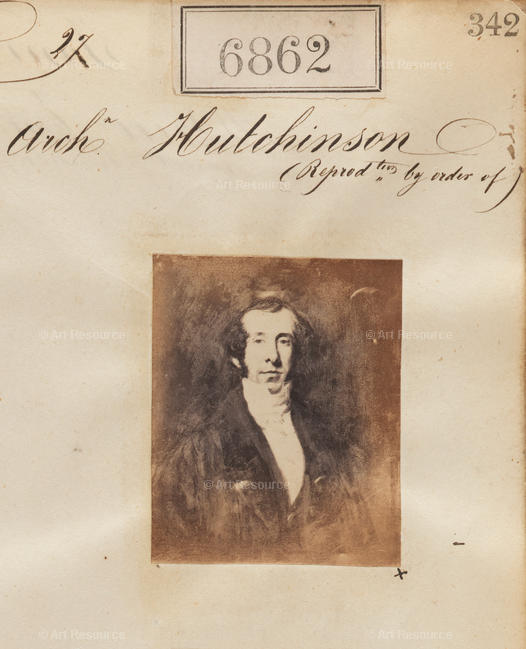 27
6862
342
Archn. Hutchinson
(Reprodtion by order of)
© Art Resource
© Art Resource
© Art Resource
© Art Resource
© Art Resource
© Art Resource
© Art Resource
© Art Resource